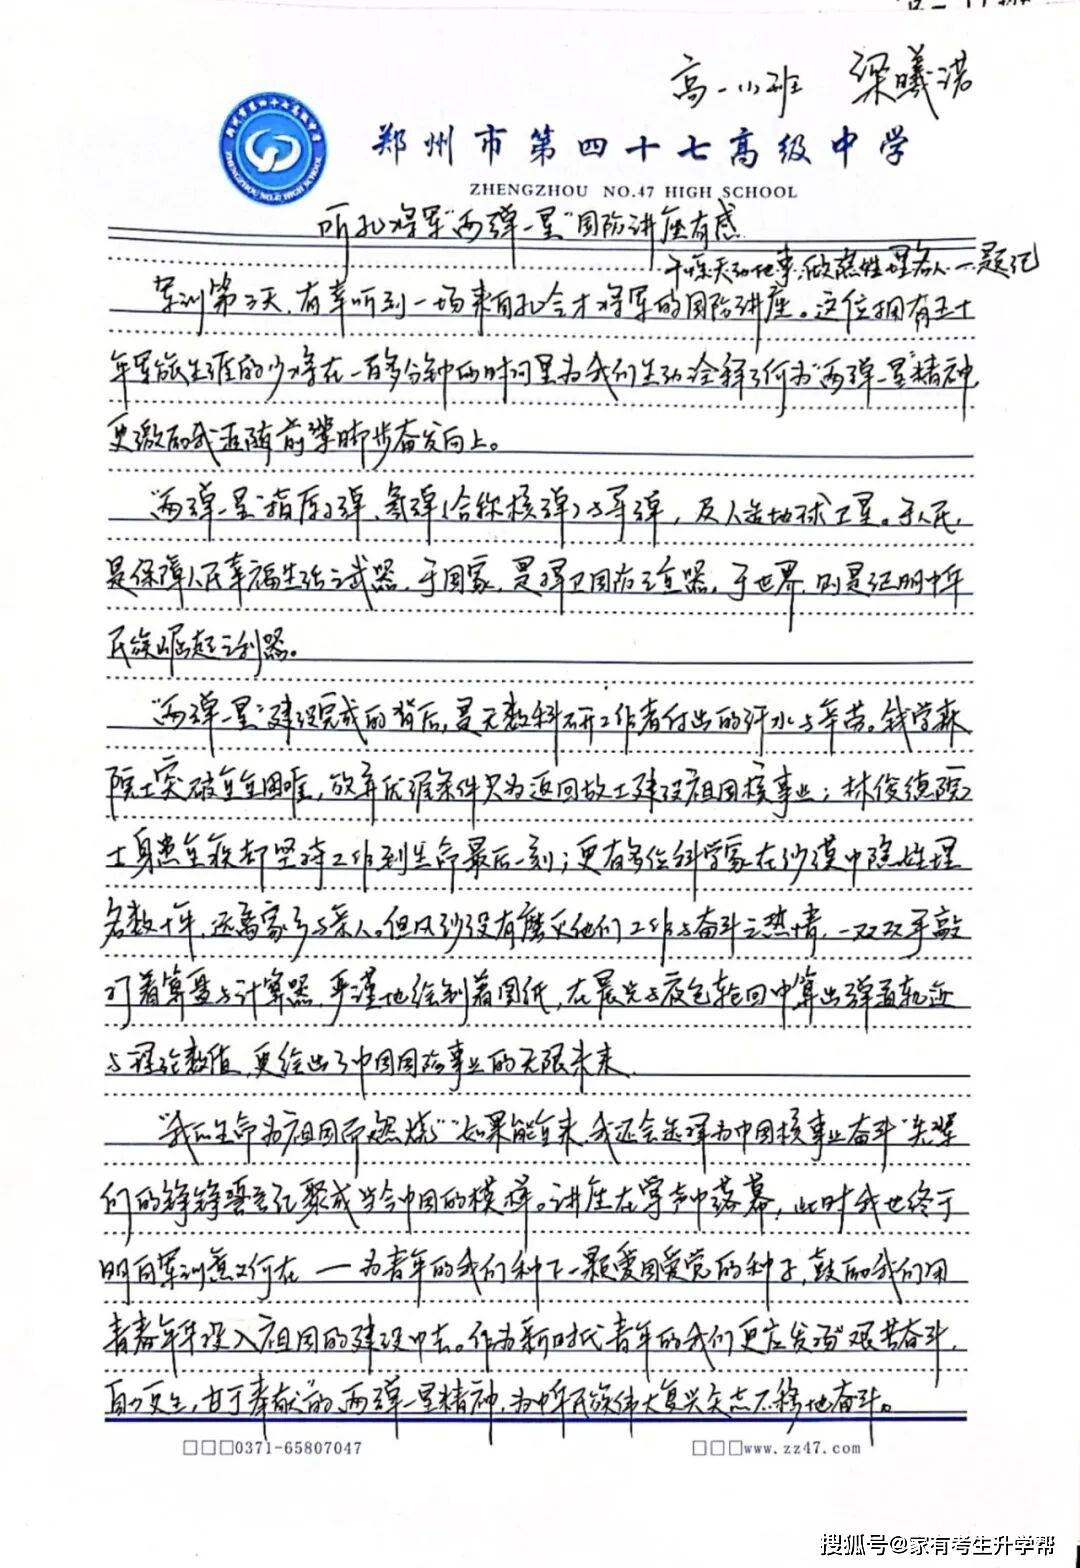 高一小班 梁曦诺
郑州市第四十七高级中学
ZHENGZHOU NO.47 HIGH SCHOOL
听孔将军“两弹一星”国防讲座有感
干惊天动地事,做隐姓埋名人 —题记
军训第三天,有幸听到一场来自孔令才将军的国防讲座。这位拥有五十
年军旅生涯的少将在一百多分钟的时间里为我们生动诠释了何为“两弹一星”精神,
更激励我追随前辈脚步奋发向上。
“两弹一星”指原子弹、氢弹(合称核弹)与导弹,及人造地球卫星。于人民,
是保障人民幸福生活之武器,于国家,是捍卫国防之重器,于世界,则是证明中华
民族崛起之利器。
“两弹一星”建设完成的背后,是无数科研工作者付出的汗水与辛劳。钱学森
院士突破重重困难,放弃优渥条件只为返回故土建设祖国核事业;林俊德院
士身患重疾却坚持工作到生命最后一刻;更有多位科学家在沙漠中隐姓埋
名数十年,远离家乡与亲人。但风沙没有磨灭他们工作与奋斗之热情,一双双手敲
打着算盘与计算器,严谨地绘制着图纸,在晨光与夜色轮回中算出弹道轨迹
与理论数值,更绘出了中国国防事业的无限未来。
“我的生命为祖国而燃烧”“如果能重来,我还会选择为中国核事业奋斗”先辈
们的铮铮誓言汇聚成当今中国的模样。讲座在掌声中落幕,此时我也终于
明白军训意义何在 — 为青年的我们种下一颗爱国爱党的种子,鼓励我们用
青春年华投入祖国的建设中去。作为新时代青年的我们更应发扬“艰苦奋斗,
自力更生,甘于奉献”的“两弹一星”精神,为中华民族伟大复兴矢志不移地奋斗。
□□□0371-65807047
□□□www.zz47.com
搜狐号@家有考生升学帮